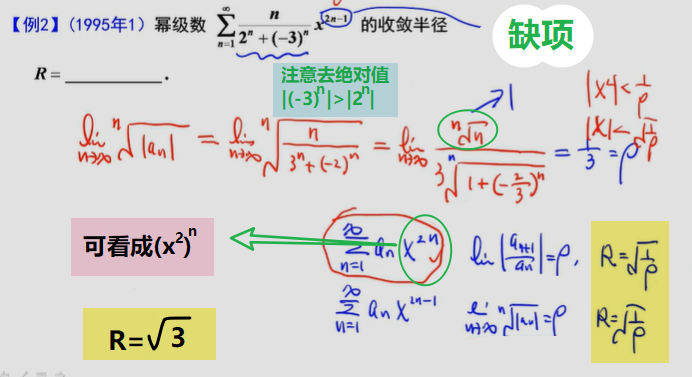 【例2】(1995年1) 幂级数 $\sum_{n=1}^{\infty} \frac{n}{2^n+(-3)^n} x^{2n-1}$ 的收敛半径
缺项
R = ________ .
注意去绝对值
|(-3)^n|>|2^n|
$\lim_{n\to\infty} \sqrt[n]{|a_n|} = \lim_{n\to\infty} \sqrt[n]{\frac{n}{3^n+(-2)^n}} = \lim_{n\to\infty} \frac{\sqrt[n]{n}}{3\sqrt[n]{1+(-\frac{2}{3})^n}} = \frac{1}{3} = \rho$
1
$|x^2| < \frac{1}{\rho}$
$|x| < \sqrt{\frac{1}{\rho}}$
可看成(x²)^n
$\sum_{n=1}^{\infty} a_n x^{2n}$ $\lim |\frac{a_{n+1}}{a_n}| = \rho,$ $R = \sqrt{\frac{1}{\rho}}$
$\sum_{n=1}^{\infty} a_n x^{2n-1}$ $\lim_{n\to\infty} \sqrt[n]{|a_n|} = \rho$ $R = \sqrt{\frac{1}{\rho}}$
R=√3